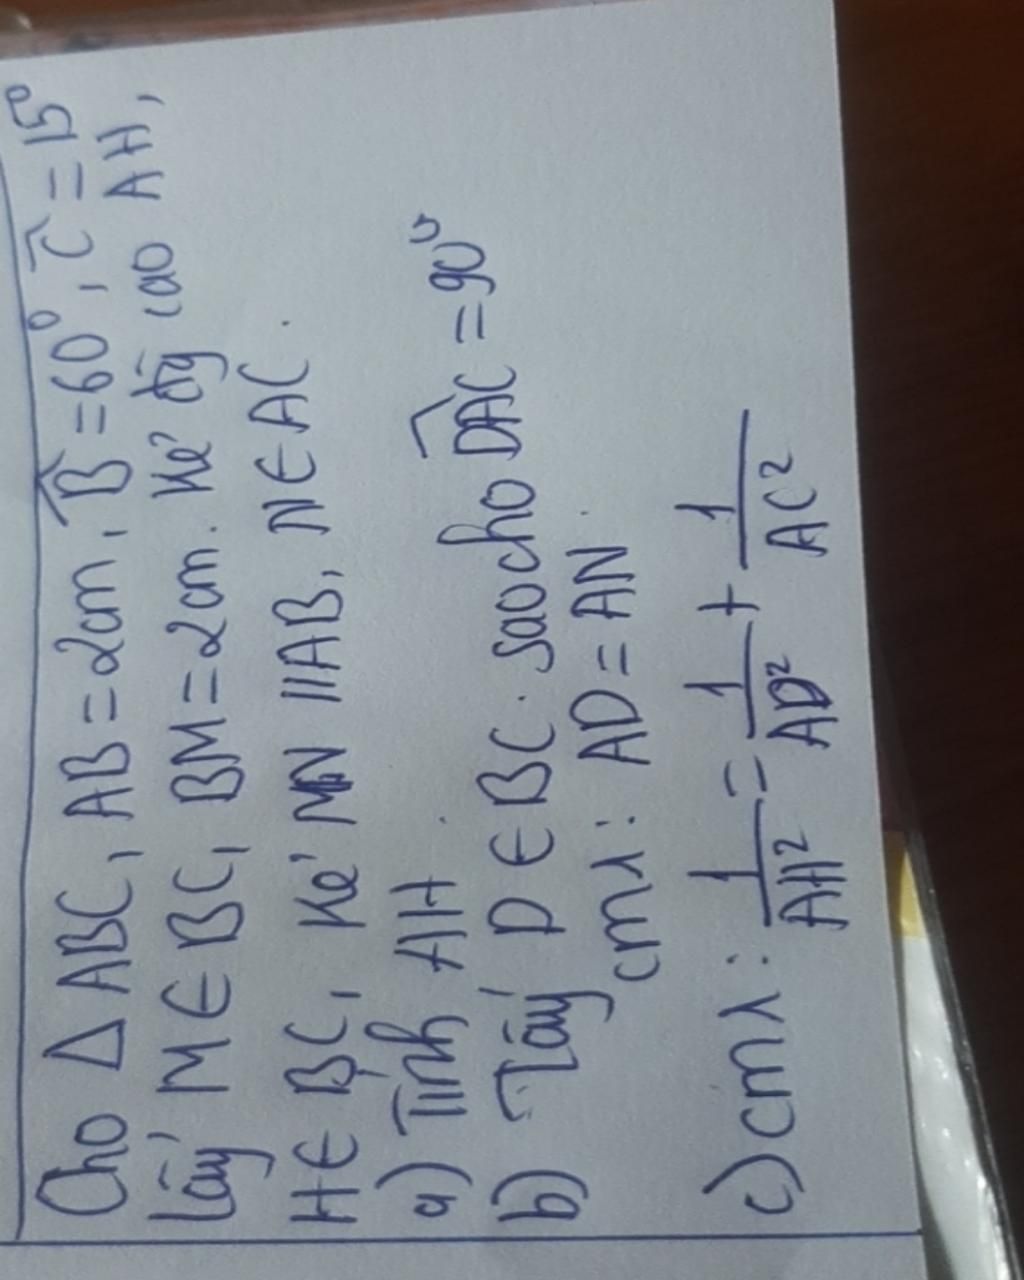 Cho Δ ABC, AB = 2cm, B̂ = 60⁰, Ĉ = 15⁰
lấy M ∈ BC, BM = 2cm. Kẻ đg cao AH,
H ∈ BC, Kẻ MN // AB, N ∈ AC.
a) Tính AH.
b) Lấy D ∈ BC. sao cho D̂AC = 90⁰
cm λ: AD = AN.
c) cm λ: 1/AH² = 1/AD² + 1/AC²